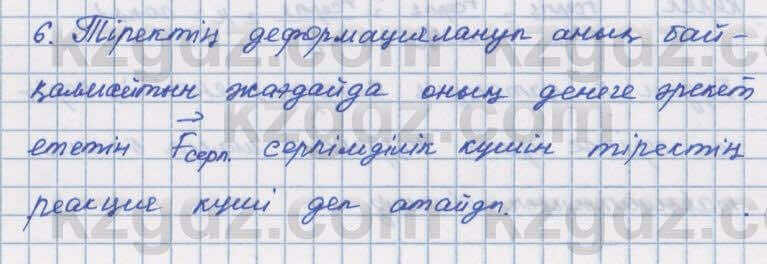 6. Тіректің деформациялануы анық бай-
қалмайтын жағдайда оның денеге әрекет
ететін F⃗серп. серпімділік күшін тіректің
реакция күші деп атайды.